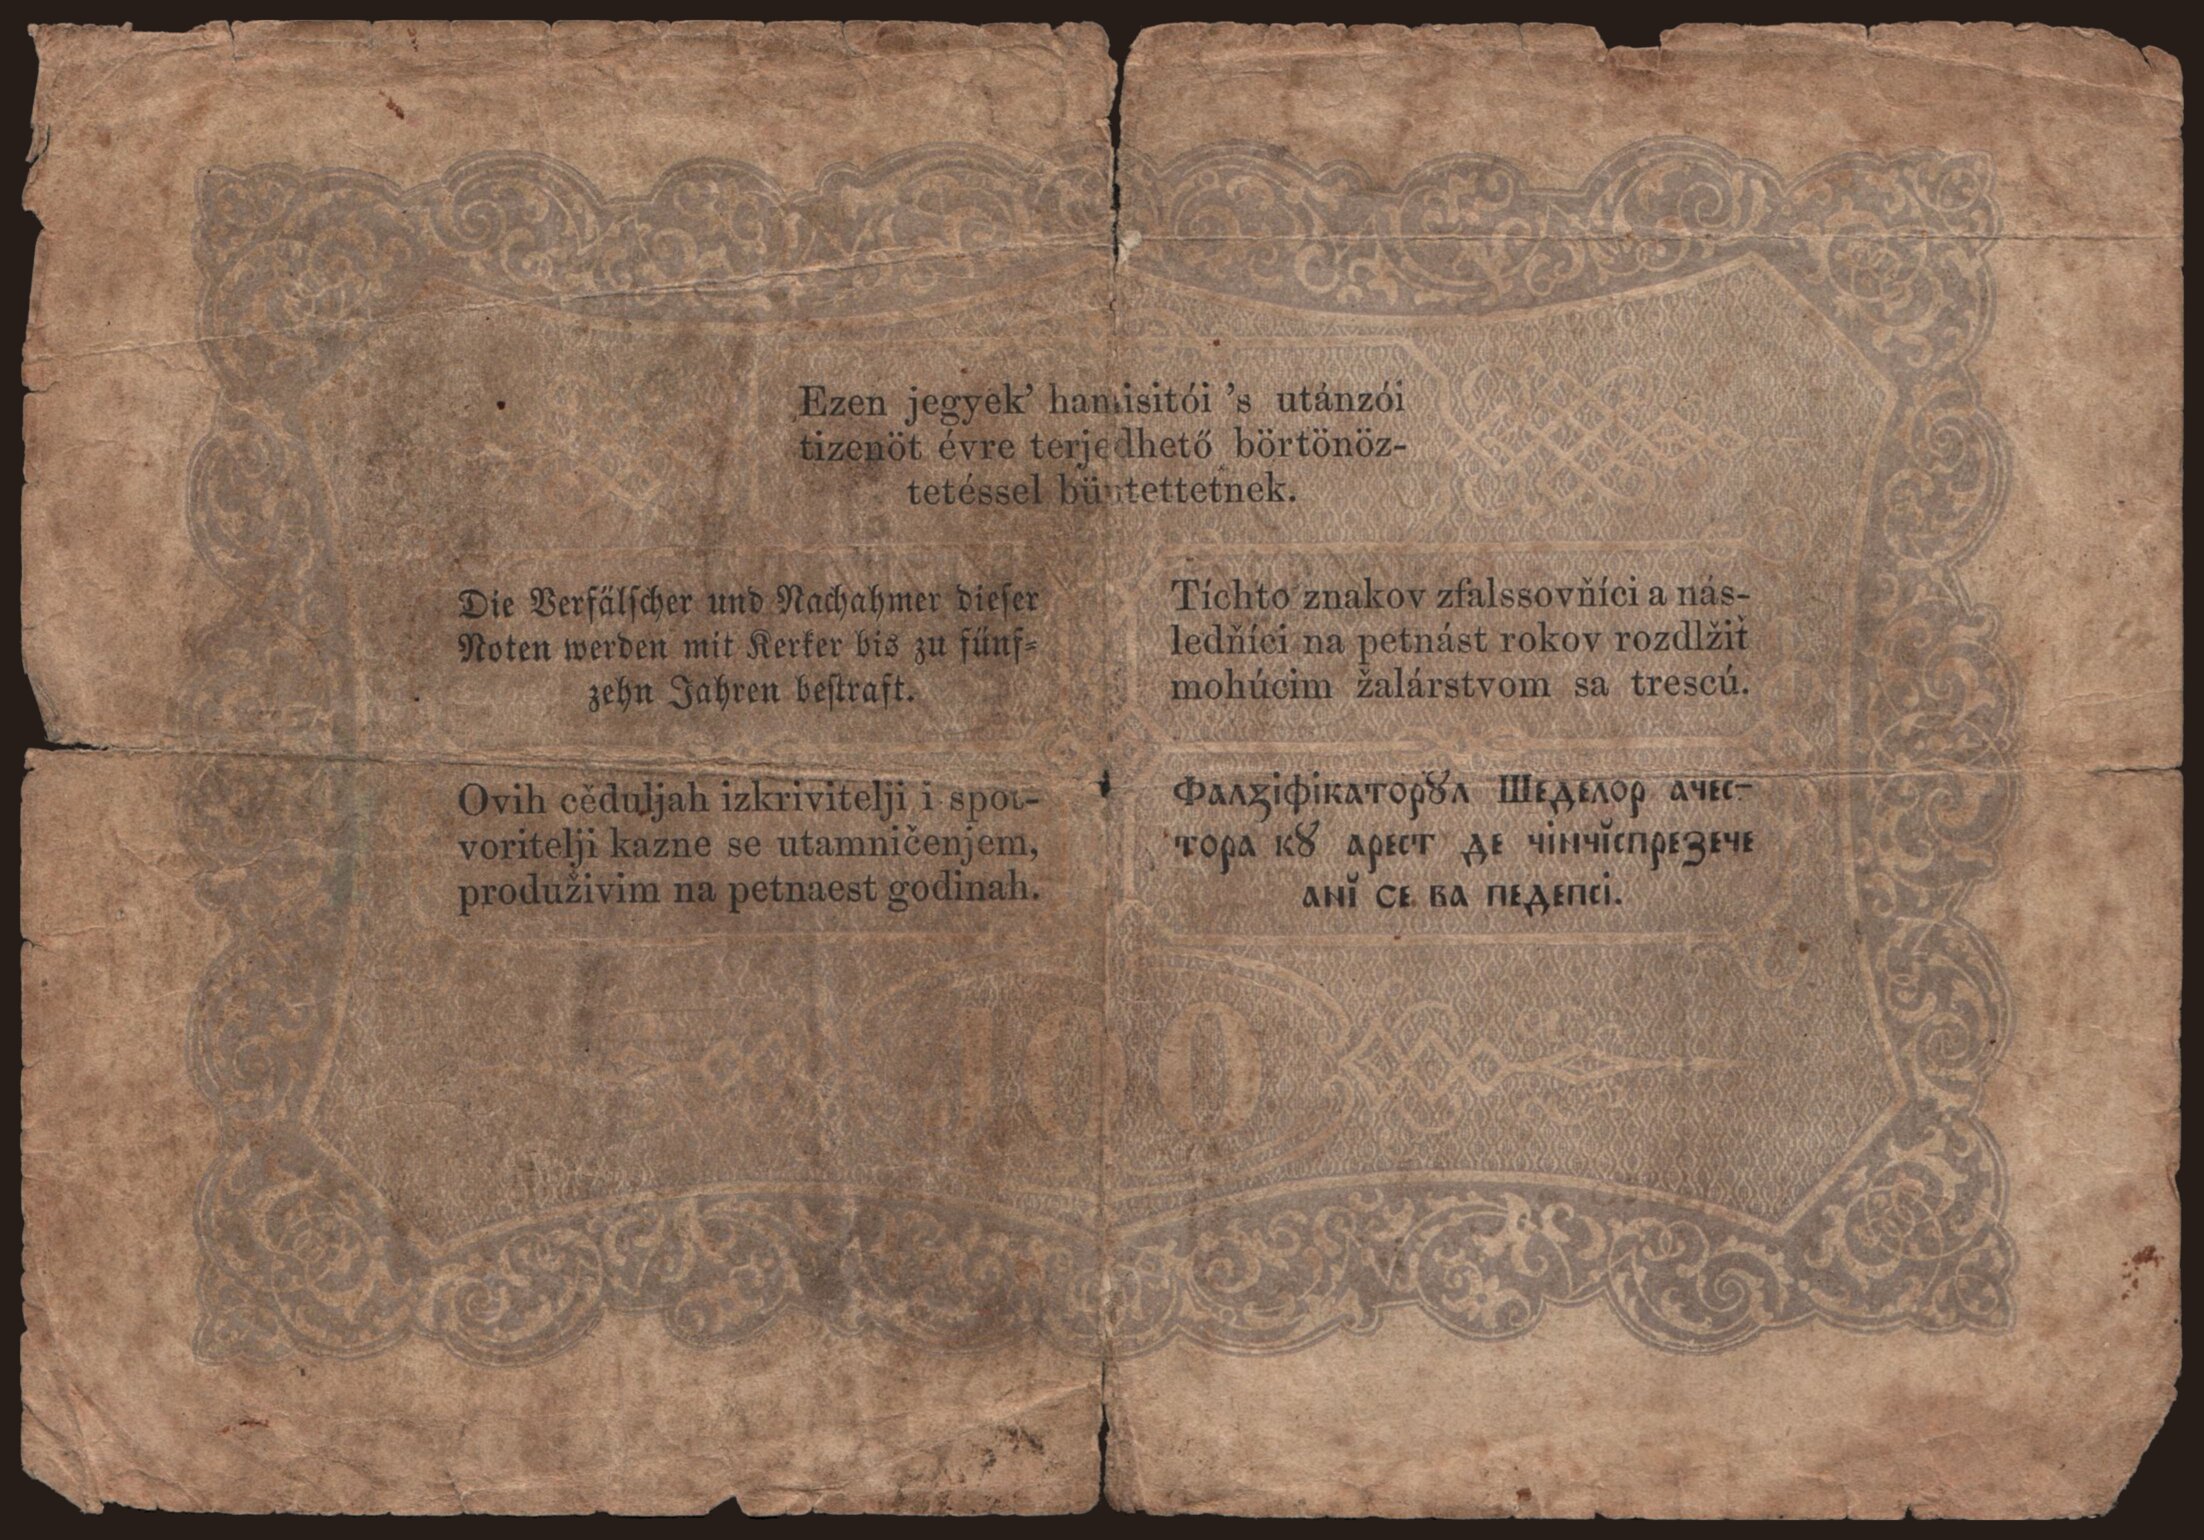 Ezen jegyek’ hamisitói ’s utánzói
tizenöt évre terjedhető börtönöz-
tetéssel büntettetnek.
Die Verfälscher und Nachahmer dieser
Noten werden mit Kerker bis zu fünf-
zehn Jahren bestraft.
Tíchto znakov zfalssovňíci a nás-
ledňíci na petnást rokov rozdlžiť
mohúcim žalárstvom sa trescú.
Ovih cěduljah izkrivitelji i spot-
voritelji kazne se utamničenjem,
produživim na petnaest godinah.
Фалзіфікаторꙋл Шеделор ачес-
тора кꙋ арест де чінчĭспрезече
анĭ се ва педепсі.
100